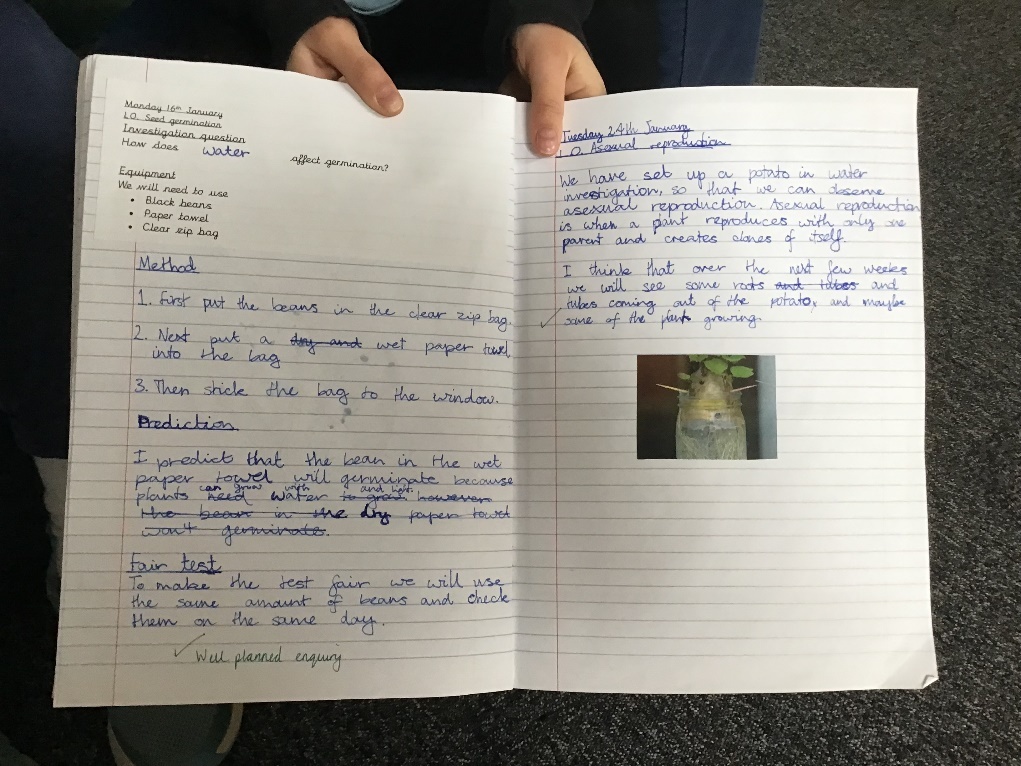 Monday 16th January
LO. Seed germination
Investigation question
How does water affect germination?
Equipment
We will need to use
• Black beans
• Paper towel
• Clear zip bag
Method
1. First put the beans in the clear zip bag.
2. Next put a dry and wet paper towel
into the bag
3. Then stick the bag to the window.
Prediction
I predict that the bean in the wet
paper towel will germinate because
can grow with and light.
plants need water to grow however
the bean in the dry paper towel
won't germinate.
Fair test
To make the test fair we will use
the same amount of beans and check
them on the same day.
Well planned enquiry
Tuesday 24th January
L.O. Asexual reproduction
We have set up a potato in water
investigation, so that we can observe
asexual reproduction. Asexual reproduction
is when a plant reproduces with only one
parent and creates clones of itself.
I think that over the next few weeks
we will see some roots and tubes and
tubes coming out of the potato, and maybe
some of the plant growing.